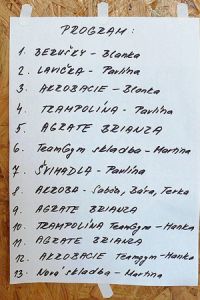 PROGRAM:
1. BERUŠKY - Blanka
2. LAVIČKA - Pavlína
3. AKROBACIE - Blanka
4. TRAMPOLÍNA - Pavlína
5. AGRATE BRIANZA
6. TeamGym skladba - Martina
7. ŠVIHADLA - Pavlína
8. AKROBA - Sabča, Bára, Terka
9. AGRATE BRIANZA
10. TRAMPOLÍNA TeamGym - Hanka
11. AGRATE BRIANZA
12. AKROBACIE Teamgym - Hanka
13. Nová skladba - Martina